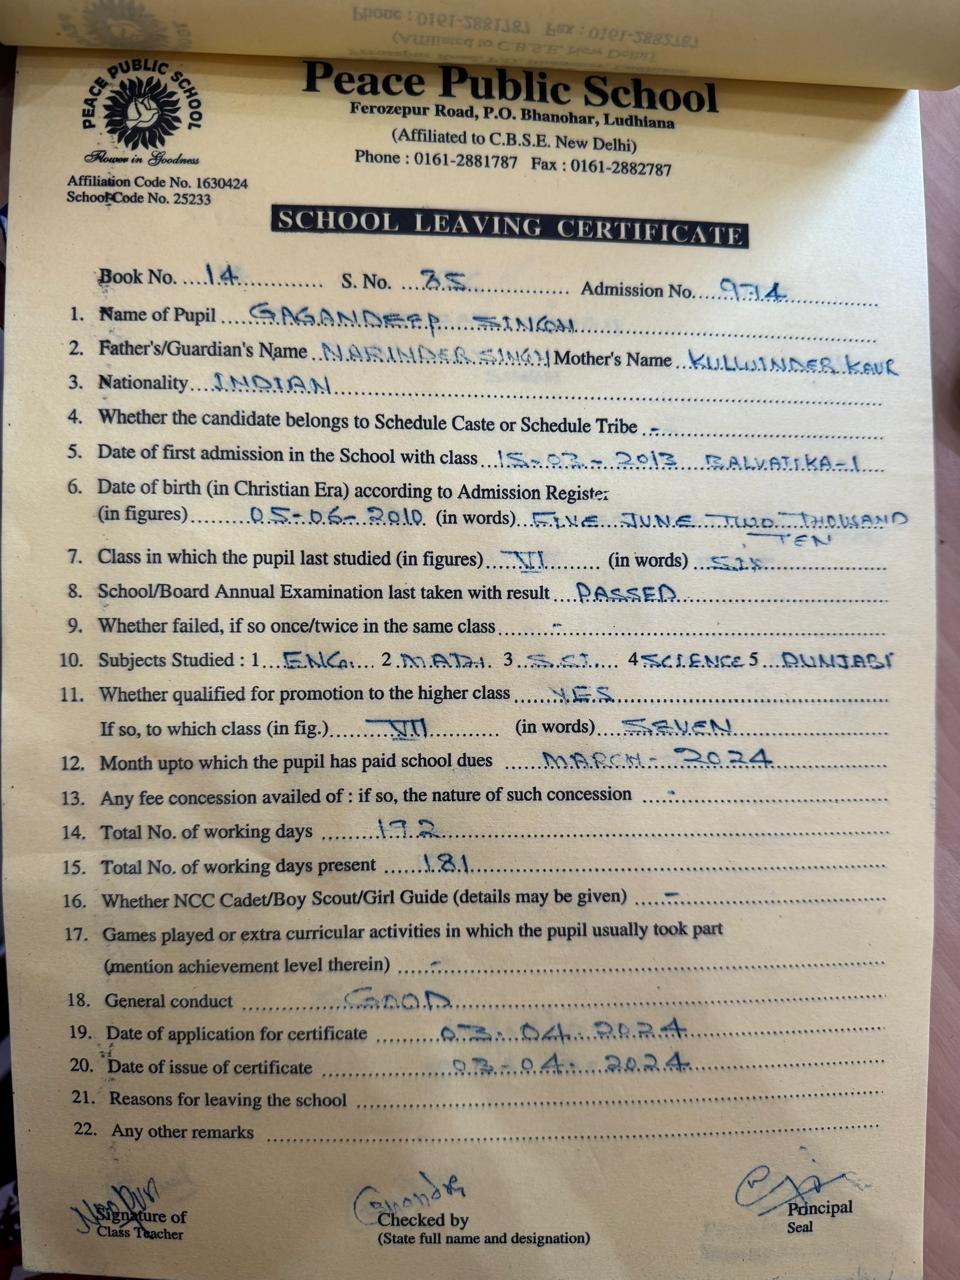 Phone : 0161-2881787 Fax : 0161-2882787
(Affiliated to C.B.S.E. New Delhi)
PEACE PUBLIC SCHOOL
Flower in Goodness
Affiliation Code No. 1630424
School Code No. 25233
Peace Public School
Ferozepur Road, P.O. Bhanohar, Ludhiana
(Affiliated to C.B.S.E. New Delhi)
Phone : 0161-2881787 Fax : 0161-2882787
SCHOOL LEAVING CERTIFICATE
Book No. 14 S. No. 35 Admission No. 974
1. Name of Pupil GAGANDEEP SINGH
2. Father's/Guardian's Name NARINDER SINGH Mother's Name KULWINDER KAUR
3. Nationality INDIAN
4. Whether the candidate belongs to Schedule Caste or Schedule Tribe -
5. Date of first admission in the School with class 15-03-2013 BALVATIKA-I
6. Date of birth (in Christian Era) according to Admission Register
(in figures) 05-06-2010 (in words) FIVE JUNE TWO THOUSAND
TEN
7. Class in which the pupil last studied (in figures) VI (in words) SIX
8. School/Board Annual Examination last taken with result PASSED
9. Whether failed, if so once/twice in the same class -
10. Subjects Studied : 1 ENG. 2 MATH. 3 S.ST. 4 SCIENCE 5 PUNJABI
11. Whether qualified for promotion to the higher class YES
If so, to which class (in fig.) VII (in words) SEVEN
12. Month upto which the pupil has paid school dues MARCH - 2024
13. Any fee concession availed of : if so, the nature of such concession -
14. Total No. of working days 192
15. Total No. of working days present 181
16. Whether NCC Cadet/Boy Scout/Girl Guide (details may be given) -
17. Games played or extra curricular activities in which the pupil usually took part
(mention achievement level therein) -
18. General conduct GOOD
19. Date of application for certificate 03-04-2024
20. Date of issue of certificate 03-04-2024
21. Reasons for leaving the school
22. Any other remarks
Signature of
Class Teacher
Checked by
(State full name and designation)
Principal
Seal